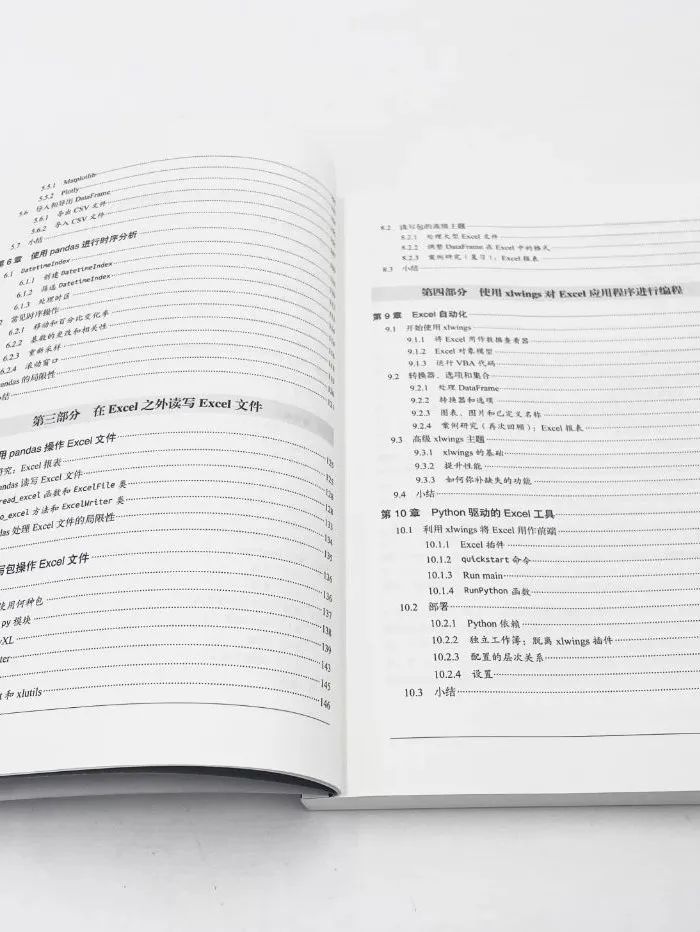 5.5.1 Matplotlib
5.5.2 Plotly
5.6 导入和导出 DataFrame
5.6.1 导出 CSV 文件
5.6.2 导入 CSV 文件
5.7 小结
第 6 章 使用 pandas 进行时序分析
6.1 DatetimeIndex
6.1.1 创建 DatetimeIndex
6.1.2 筛选 DatetimeIndex
6.1.3 处理时区
常见时序操作
6.2.1 移动和百分比变化率
6.2.2 基数的更改和相关性
6.2.3 重新采样
6.2.4 滚动窗口
pandas 的局限性
小结
第三部分 在 Excel 之外读写 Excel 文件
用 pandas 操作 Excel 文件 125
研究：Excel 报表
pandas 读写 Excel 文件 128
read_excel 函数和 ExcelFile 类 128
to_excel 方法和 ExcelWriter 类 133
das 处理 Excel 文件的局限性 134
135
写包操作 Excel 文件 136
使用何种包 136
py 模块 137
yXL 138
ter 139
143
145
t 和 xlutils 146
8.2 读写包的高级主题
8.2.1 处理大型 Excel 文件
8.2.2 调整 DataFrame 在 Excel 中的格式
8.2.3 案例研究（复习）：Excel 报表
8.3 小结
第四部分 使用 xlwings 对 Excel 应用程序进行编程
第 9 章 Excel 自动化
9.1 开始使用 xlwings
9.1.1 将 Excel 用作数据查看器
9.1.2 Excel 对象模型
9.1.3 运行 VBA 代码
9.2 转换器、选项和集合
9.2.1 处理 DataFrame
9.2.2 转换器和选项
9.2.3 图表、图片和已定义名称
9.2.4 案例研究（再次回顾）：Excel 报表
9.3 高级 xlwings 主题
9.3.1 xlwings 的基础
9.3.2 提升性能
9.3.3 如何弥补缺失的功能
9.4 小结
第 10 章 Python 驱动的 Excel 工具
10.1 利用 xlwings 将 Excel 用作前端
10.1.1 Excel 插件
10.1.2 quickstart 命令
10.1.3 Run main
10.1.4 RunPython 函数
10.2 部署
10.2.1 Python 依赖
10.2.2 独立工作簿：脱离 xlwings 插件
10.2.3 配置的层次关系
10.2.4 设置
10.3 小结